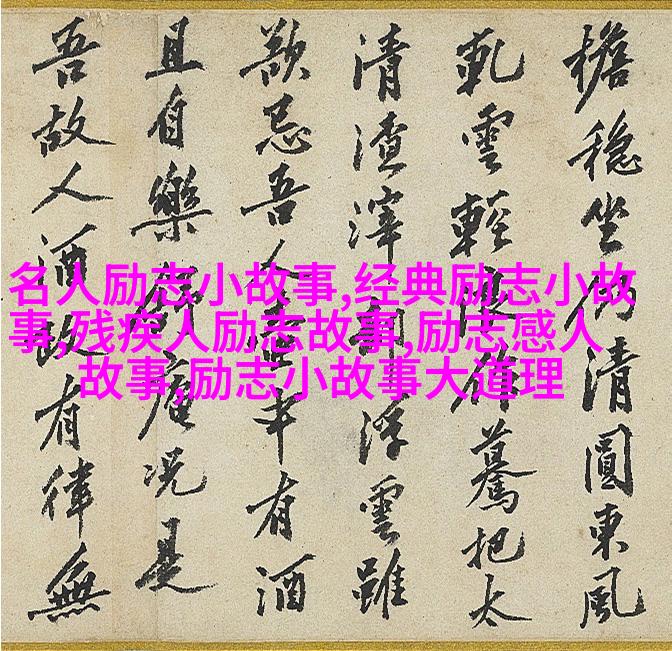 檐穩坐仍清圓東風
軋雲輕浪驀把太
清渣滓都浮雲雖
忌吾人中有酒
且自樂庵況是
吾故人酒政有律無
名人励志小故事,经典励志小故
事,残疾人励志故事,励志感人
故事,励志小故事大道理